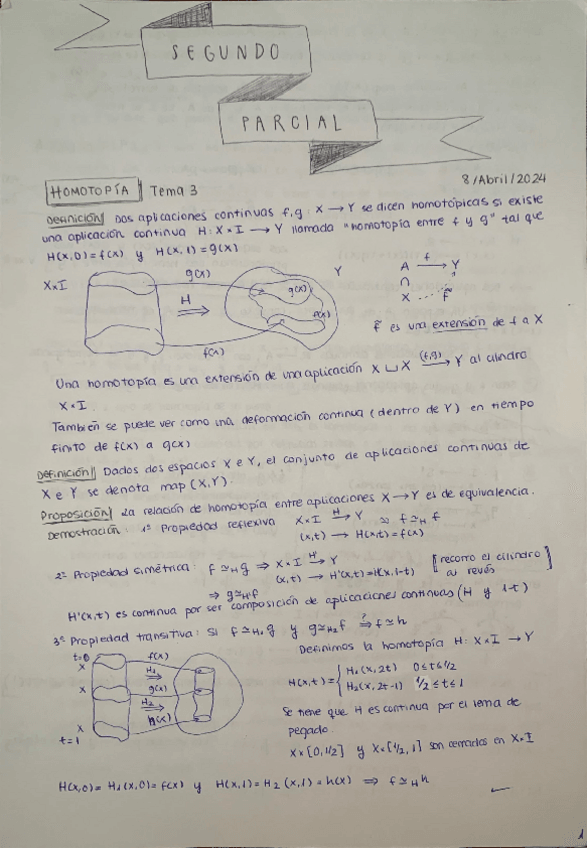 SEGUNDO
PARCIAL
8/Abril/2024
HOMOTOPÍA Tema 3
Definición Dos aplicaciones continuas f,g: X → Y se dicen homotópicas si existe
una aplicación continua H: X×I → Y llamada "homotopía entre f y g" tal que
H(x,0)=f(x) y H(x,1)=g(x)
X×I g(x) Y
H
g(x)
f(x)
f(x)
A f→ Y
∩
X ⋯ f̃
f̃ es una extensión de f a X
Una homotopía es una extensión de una aplicación X ⊔ X (f,g)→ Y al cilindro
X×I.
También se puede ver como una deformación continua (dentro de Y) en tiempo
finito de f(x) a g(x)
Definición Dados dos espacios X e Y, el conjunto de aplicaciones continuas de
X e Y se denota map(X,Y).
Proposición La relación de homotopía entre aplicaciones X→Y es de equivalencia.
Demostración: 1º Propiedad reflexiva X×I H→ Y ⇒ f ≃H f
(x,t) → H(x,t)=f(x)
2º Propiedad simétrica: f ≃H g ⇒ X×I H'→ Y [recorro el cilindro
(x,t) → H'(x,t)=H(x,1-t) al revés]
⇒ g ≃H' f
H'(x,t) es continua por ser composición de aplicaciones continuas (H y 1-t)
3º Propiedad transitiva: Si f ≃H₁ g y g ≃H₂ f ?⇒ f ≃ h
t=0 f(x)
X H₁
X g(x)
H₂
X h(x)
t=1
Definimos la homotopía H: X×I → Y
H(x,t) = { H₁(x,2t) 0≤t≤1/2
H₂(x,2t-1) 1/2≤t≤1
Se tiene que H es continua por el lema de
pegado.
X×[0,1/2] y X×[1/2,1] son cerrados en X×I
H(x,0)=H₁(x,0)=f(x) y H(x,1)=H₂(x,1)=h(x) ⇒ f ≃H h
1